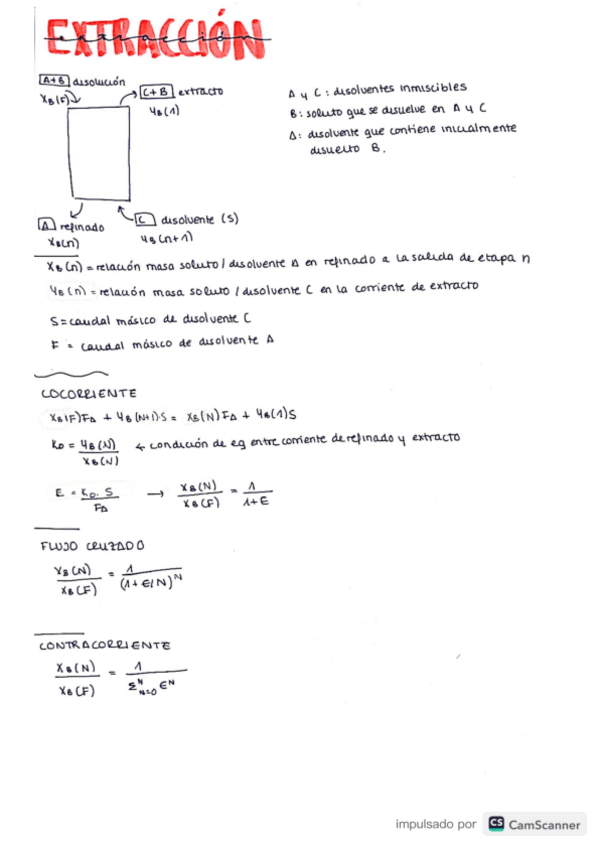 EXTRACCIÓN
extracción
A+B disolución
XB(F)
C+B extracto
YB(1)
A refinado
XB(n)
C disolvente (S)
YB(n+1)
A y C: disolventes inmiscibles
B: soluto que se disuelve en A y C
A: disolvente que contiene inicialmente
disuelto B.
XB(n) = relación masa soluto/disolvente A en refinado a la salida de etapa n
YB(n) = relación masa soluto/disolvente C en la corriente de extracto
S = caudal másico de disolvente C
F = caudal másico de disolvente A
COCORRIENTE
XB(F)FA + YB(N+1)·S = XB(N)FA + YB(1)S
KD = YB(N) / XB(N) ← condición de eq entre corriente de refinado y extracto
E = KD·S / FA → XB(N) / XB(F) = 1 / 1+E
FLUJO CRUZADO
XB(N) / XB(F) = 1 / (1+E/N)^N
CONTRACORRIENTE
XB(N) / XB(F) = 1 / Σ^N_N=0 E^N
impulsado por CS CamScanner